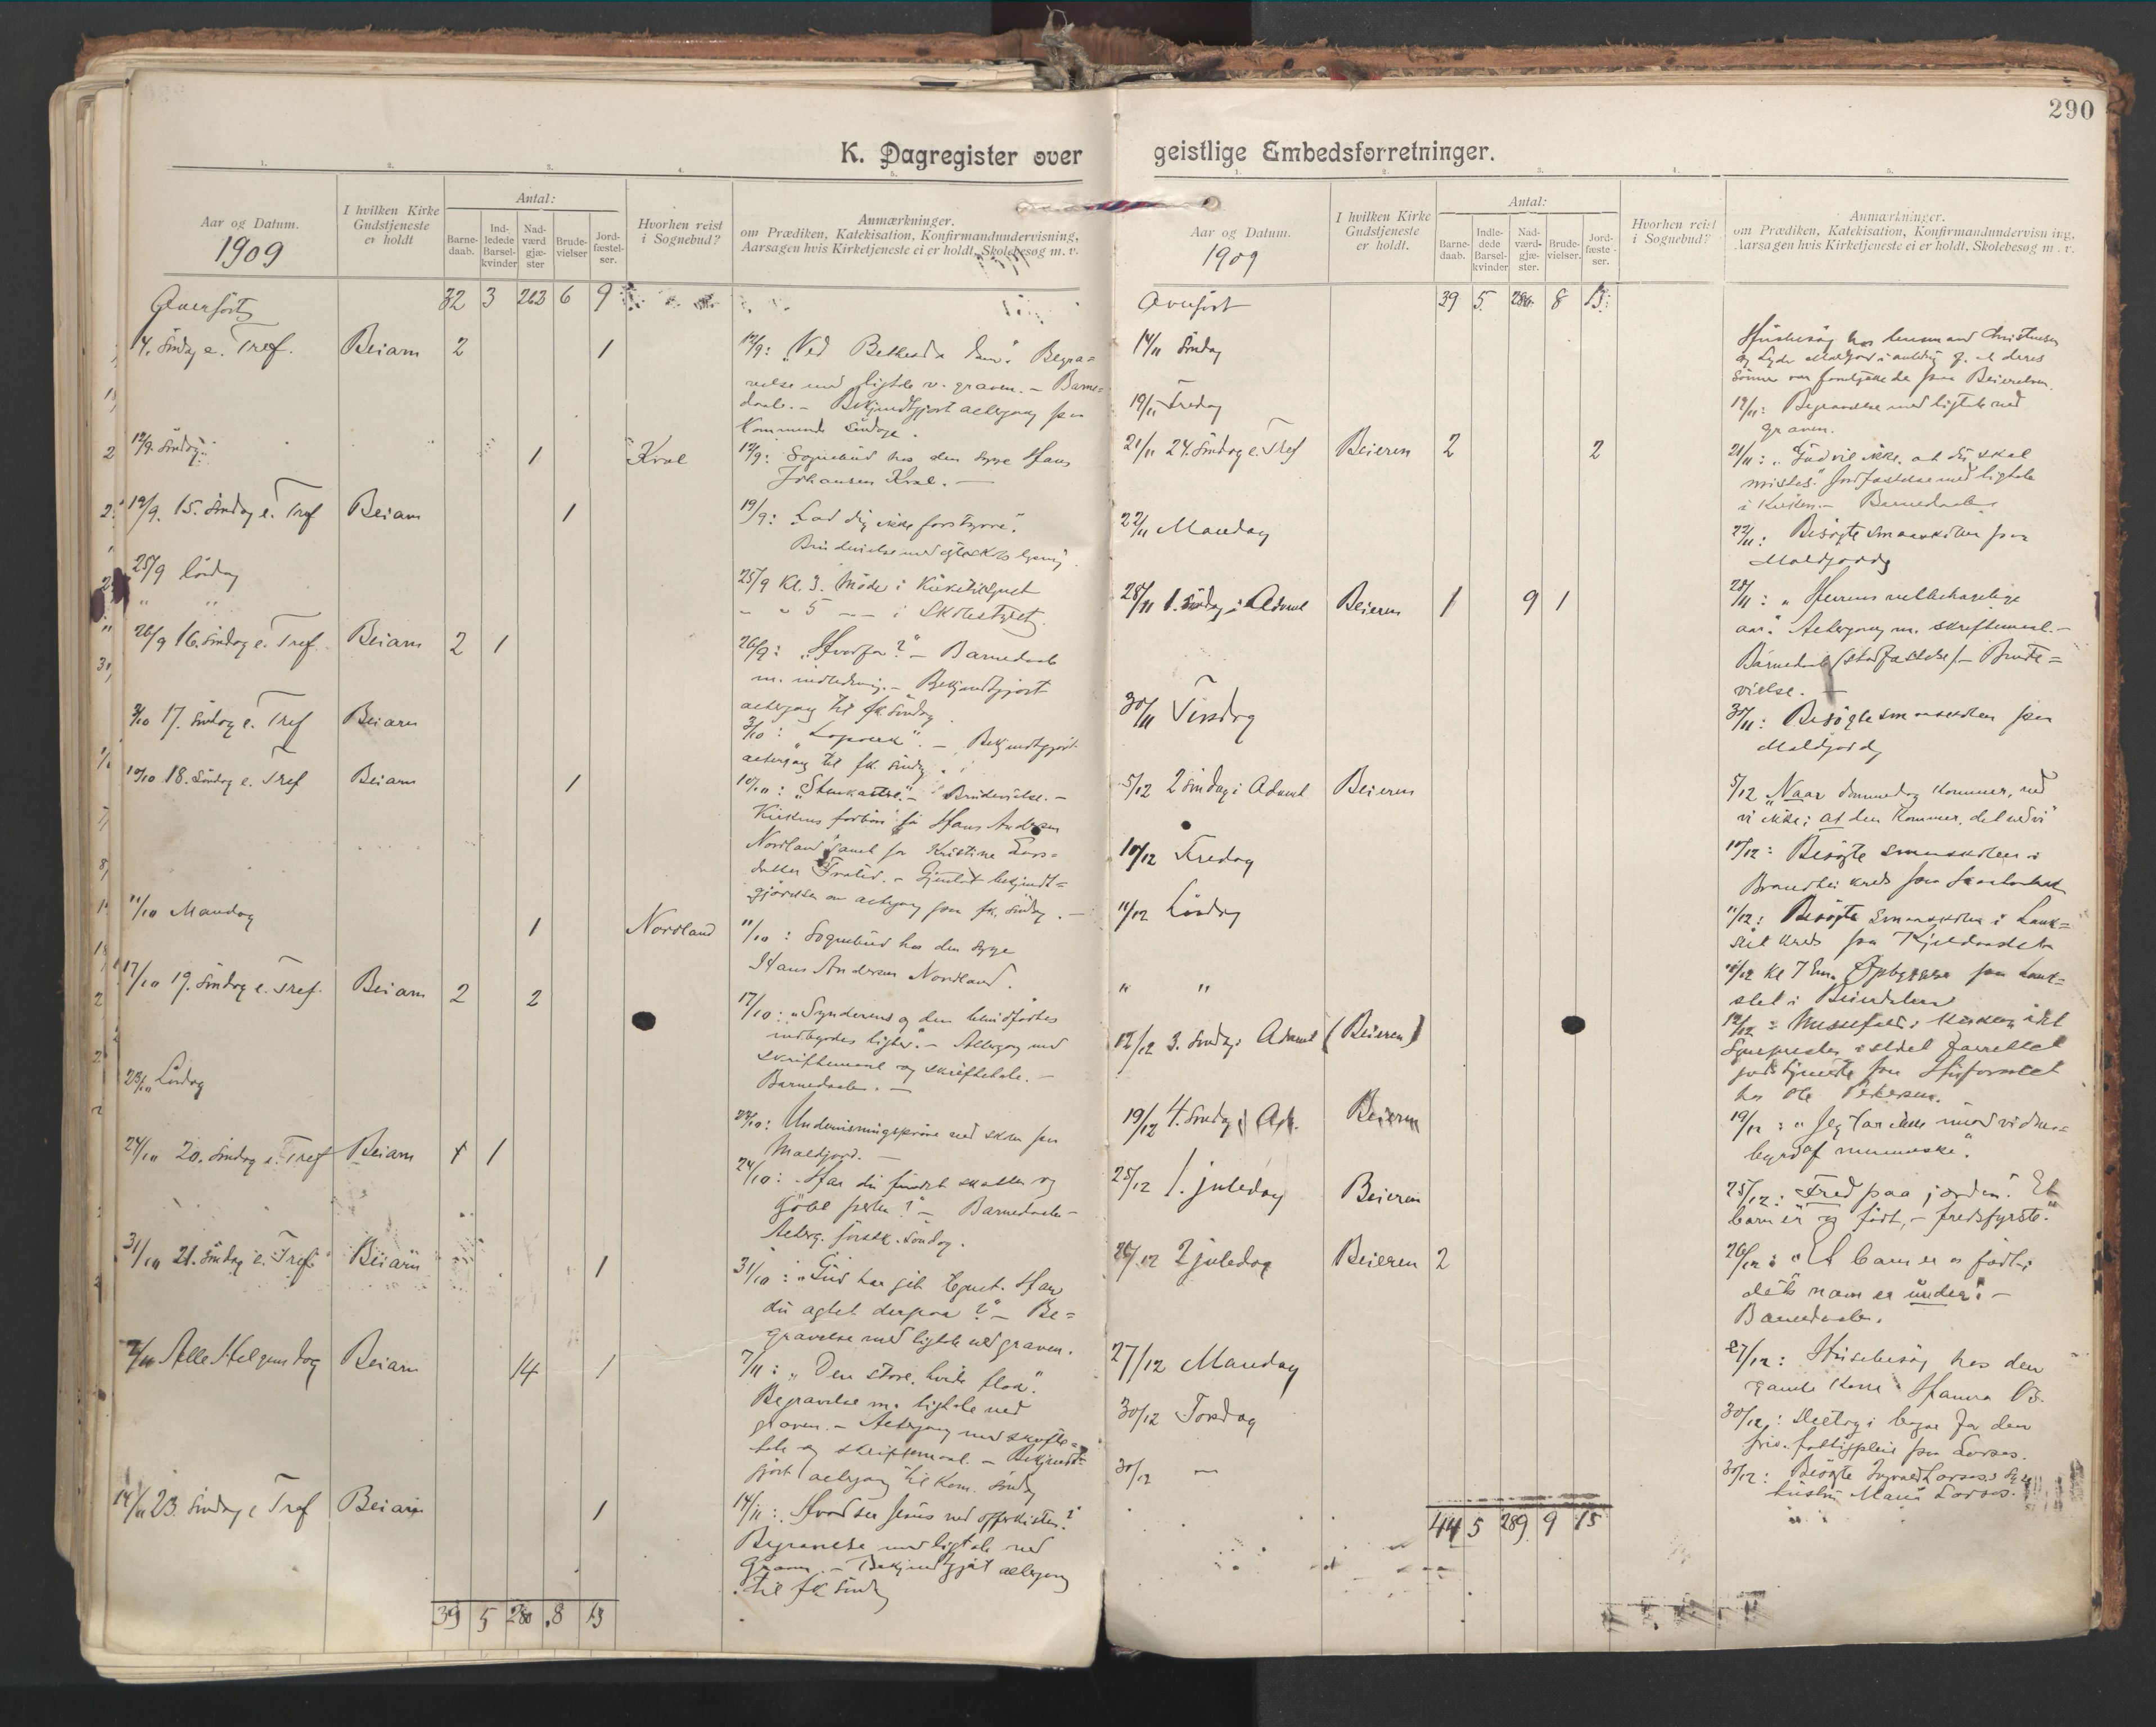 290
K. Dagregister over
1. 2. 3. 4. 5.
Aar og Datum.
1909
I hvilken Kirke
Gudstjeneste
er holdt
Antal:
Barne-
daab.
Ind-
ledede
Barsel-
kvinder
Nad-
værd
gjæ-
ster
Brude-
vielser
Jord-
fæstel-
ser.
Hvorhen reist
i Sognebud?
Anmærkninger.
om Prædiken, Katekisation, Konfirmandundervisning,
Aarsagen hvis Kirketjeneste ei er holdt, Skolebesøg m. v.
Overført 32 3 263 6 9
14. Søndag e. Tref. Beiarn 2 1 12/9: "Ved Bethesda dam". Begra=
velse med ligtale v. graven. – Barne=
daab. – Bekjendtgjort altergang paa
kommende Søndag.
12/9. Søndag 1 Kvæl 12/9: Sognebud hos den syge Hans
Johansen Kvæl. –
19/9. 15. Søndag e. Tref Beiarn 1 19/9: Lad dig ikke forstyrre".
Brudevielse med
25/9 Lørdag 25/9 Kl. 3. Møde i Kirketilsynet
" " " " 5 – – i Skolestyret.
26/9 16. Søndag e. Tref. Beiarn 2 1 26/9: "Hvorfor?" – Barnedaab
m. indledning. – Bekjendtgjort
altergang til fk. Søndag.
3/10 17. Søndag e. Tref Beiarn 3/10: – Bekjendtgjort
altergang til fk. Søndag.
10/10 18. Søndag e. Tref Beiarn 1 10/10: "Stenkastre". – Brudevielse. –
Kirkens forbøn for Hans Andersen
Nordland samt for Kristine Lars=
datter – Gjentat bekjendt=
gjørelse om altergang paa fk. Søndag. –
11/10 Mandag 1 Nordland 11/10: Sognebud hos den syge
Hans Andersen Nordland.
17/10 19. Søndag e. Tref. Beiarn 2 2 17/10: "Synderens og den blindfødtes
indbyrdes lighed". – Altergang med
skriftemaal og skriftetale. –
Barnedaab. –
23/10 Lørdag 23/10: Undervisningsprøve ved skolen paa
Moldjord. –
24/10 20. Søndag e. Tref Beiarn 1 1 24/10: Har du fundet skatten og
kjøbt perlen?" – Barnedaab –
Alterg. førstk. Søndag.
31/10 21. Søndag e. Tref. Beiarn 1 31/10: "Gud har gjit Har
du agtet derpaa?" – Be=
gravelse med ligtale ved graven.
7/11 Alle Helgens dag Beiarn 14 1 7/11: "Den store, hvide flok".
Begravelse m. ligtale ved
graven. – Altergang med skrifte=
tale og skriftemaal. – Bekjendt=
gjort altergang til kom. Søndag
14/11 23. Søndag e Tref Beiarn 1 14/11: Hvad ser Jesus ved offerkisten?
Begravelse med ligtale ved
Graven. – Bekjendtgjort altergang
til fk Søndag
39 5 280 8 13
geistlige Embedsforretninger.
1. 2. 3. 4. 5.
Aar og Datum.
1909
I hvilken Kirke
Gudstjeneste
er holdt.
Antal:
Barne-
daab.
Indle-
dede
Barsel-
kvinder
Nad-
værd-
gjæ-
ster.
Brude-
vielser.
Jord-
fæste-
ser.
Hvorhen reist
i Sognebud?
Anmærkninger.
om Prædiken, Katekisation, Konfirmandundervisning,
Aarsagen hvis Kirketjeneste ei er holdt, Skolebesøg m. v.
Overført 39 5 280 8 13
14/11 Søndag Husbesøg hos Christensen
Moldjord i anledn. af at deres
Sønner var paa Beierelven.
19/11 Fredag 19/11: Begravelse med ligtale ved
graven.
21/11 24. Søndag e. Tref Beieren 2 2 21/11: "Gud vil ikke, at du skal
mistes." Jordfæstelse med ligtale
i Kirken. – Barnedaab
22/11 Mandag 22/11: Besøgte smaaskolen paa
Moldjord
28/11 1. Søndag i Advent Beieren 1 9 1 28/11: "Herrens velbehagelige
aar". Altergang m. skriftemaal. –
Barnedaab (stadfæstelse) – Brude=
vielse. –
30/11 Tirsdag 30/11: Besøgte smaaskolen paa
Moldjord
5/12 2 Søndag i Advent Beieren 5/12 "Naar dommedag kommer, ved
vi ikke; at den kommer, det ved vi"
10/12 Fredag 10/12: Besøgte smaaskolen i
kreds paa
11/12 Lørdag 11/12: Besøgte smaaskolen i
kreds paa
" " 11/12 Kl 7 Em. Opbyggelse paa
i Beierdalen
12/12 3. Søndag i Advent (Beieren) 12/12: Messefald i kirken, idet
Sognepresten istedet forrettet
gudstjeneste paa
hos Ole Petersen.
19/12 4. Søndag i Adv. Beieren 19/12: "Jeg tar ikke imod vidnes=
byrd af menneske".
25/12 1. juledag Beieren 25/12: Fred paa jorden". Et
barn er os født, – fredsfyrste."
26/12 2 juledag Beieren 2 26/12: "Et barn er os født;
dets navn er under". –
Barnedaab.
27/12 Mandag 27/12: Husbesøg hos den
gamle kone Hanna
30/12 Torsdag 30/12: for den
paa Larsos.
30/12 – 30/12: Besøgte Larsos's syge
hustru Larsos.
44 5 289 9 15